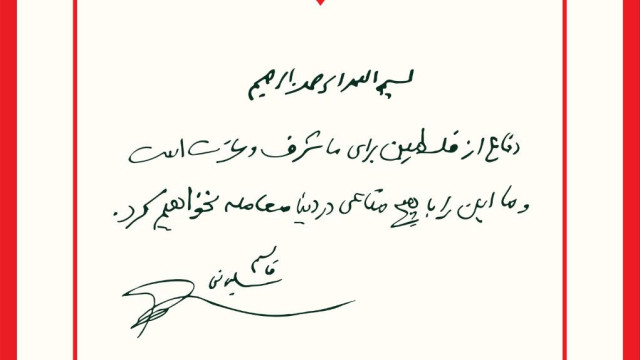 بسم الله الرحمن الرحیم
دفاع از فلسطین برای ما شرف و عزت است
و ما این را با هیچ متاعی در دنیا معامله نخواهیم کرد.
قاسم
سلیمانی